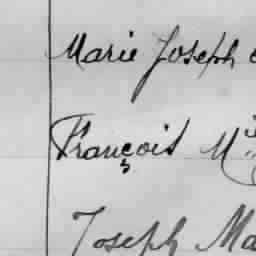 Marie Joseph
François M
Joseph Ma